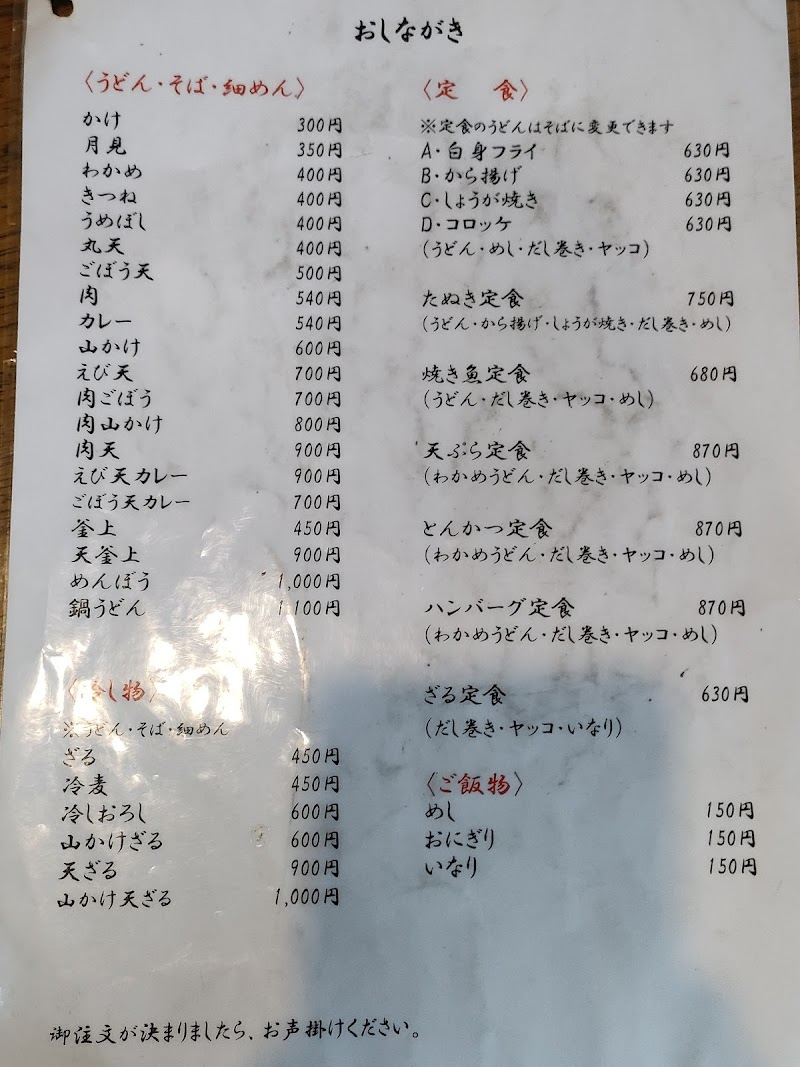 おしながき
〈うどん・そば・細めん〉
かけ 300円
月見 350円
わかめ 400円
きつね 400円
うめぼし 400円
丸天 400円
ごぼう天 500円
肉 540円
カレー 540円
山かけ 600円
えび天 700円
肉ごぼう 700円
肉山かけ 800円
肉天 900円
えび天カレー 900円
ごぼう天カレー 700円
釜上 450円
天釜上 900円
めんぼう 1,000円
鍋うどん 1,100円
〈冷し物〉
※うどん・そば・細めん
ざる 450円
冷麦 450円
冷しおろし 600円
山かけざる 600円
天ざる 900円
山かけ天ざる 1,000円
〈定 食〉
※定食のうどんはそばに変更できます
A・白身フライ 630円
B・から揚げ 630円
C・しょうが焼き 630円
D・コロッケ 630円
(うどん・めし・だし巻き・ヤッコ)
たぬき定食 750円
(うどん・から揚げ・しょうが焼き・だし巻き・めし)
焼き魚定食 680円
(うどん・だし巻き・ヤッコ・めし)
天ぷら定食 870円
(わかめうどん・だし巻き・ヤッコ・めし)
とんかつ定食 870円
(わかめうどん・だし巻き・ヤッコ・めし)
ハンバーグ定食 870円
(わかめうどん・だし巻き・ヤッコ・めし)
ざる定食 630円
(だし巻き・ヤッコ・いなり)
〈ご飯物〉
めし 150円
おにぎり 150円
いなり 150円
御注文が決まりましたら、お声掛けください。